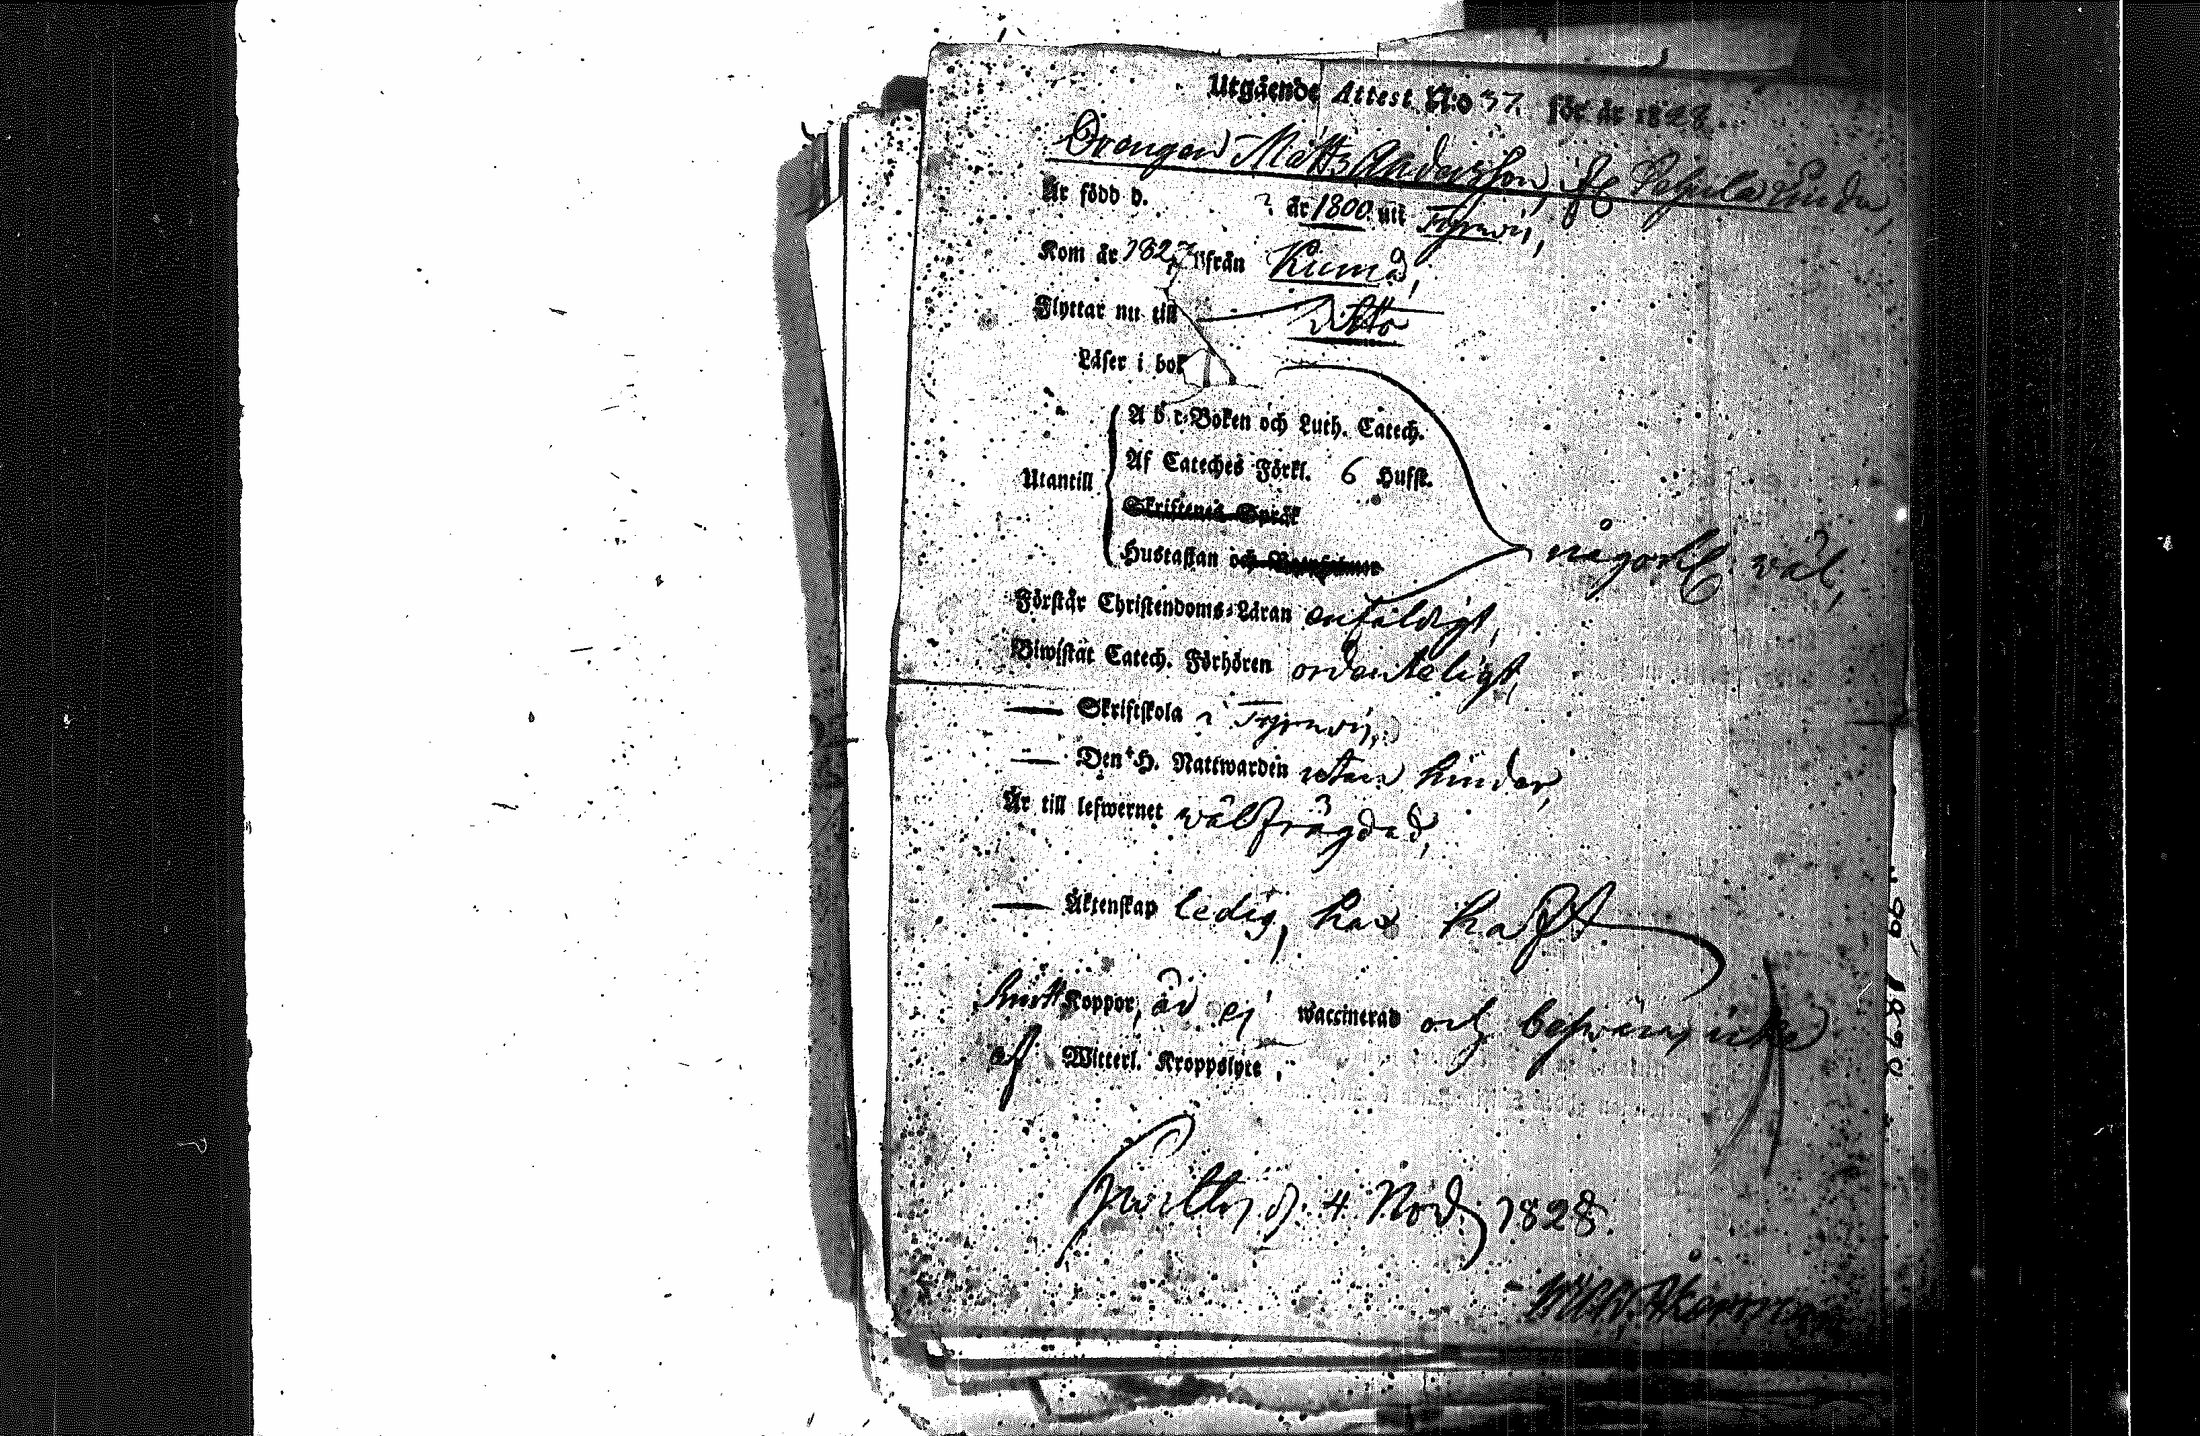 Utgående Attest N:o 37. för år 1828.
Drengen Matts Andersson, fr
Är född d. ? år 1800 uti Tyrwis,
Kom år 1827 ifrån Kiumå,
Flyttar nu till ditto
Läser i bok
A b c-Boken och Luth. Catech.
Af Cateches Förkl. 6 Hufst.
Utantill
Skriftenes Språk
Hustaflan och
någorl. väl,
Förstår Christendoms-Läran enfaldigt,
Biwistat Catech. Förhören ordenteligt,
— Skriftskola i Tyrwis,
— Den H. Nattwarden utan hinder,
Är till lefwernet wälfrägdad,
— Äktenskap ledig, har haft
Koppor, är ej waccinerad och beswäras icke
af Witterl. Kroppslyte,
d. 4 Nov. 1828.
Åkerman